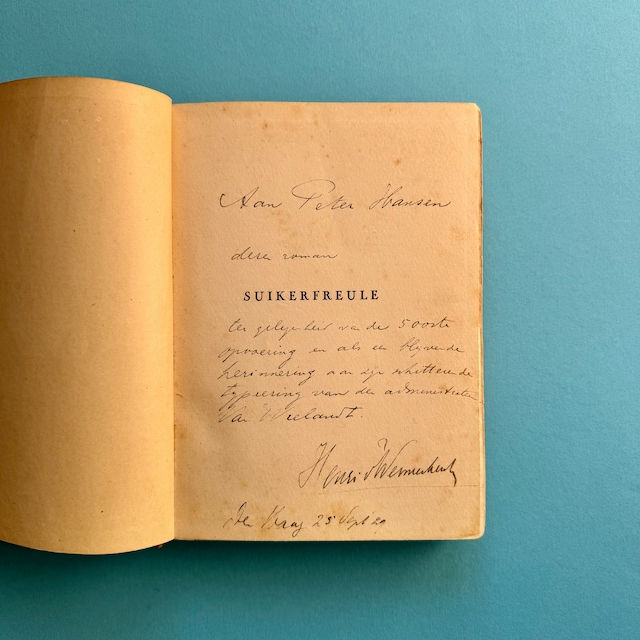 Aan Peter Hansen
deze roman
SUIKERFREULE
ter gelegenheid van de 500ste
opvoering en als een blijvende
herinnering aan zijn schitterende
typeering van den administrateur
Van Wielandt.
Henri v Wermeskerk
Den Haag 25 Sept 29